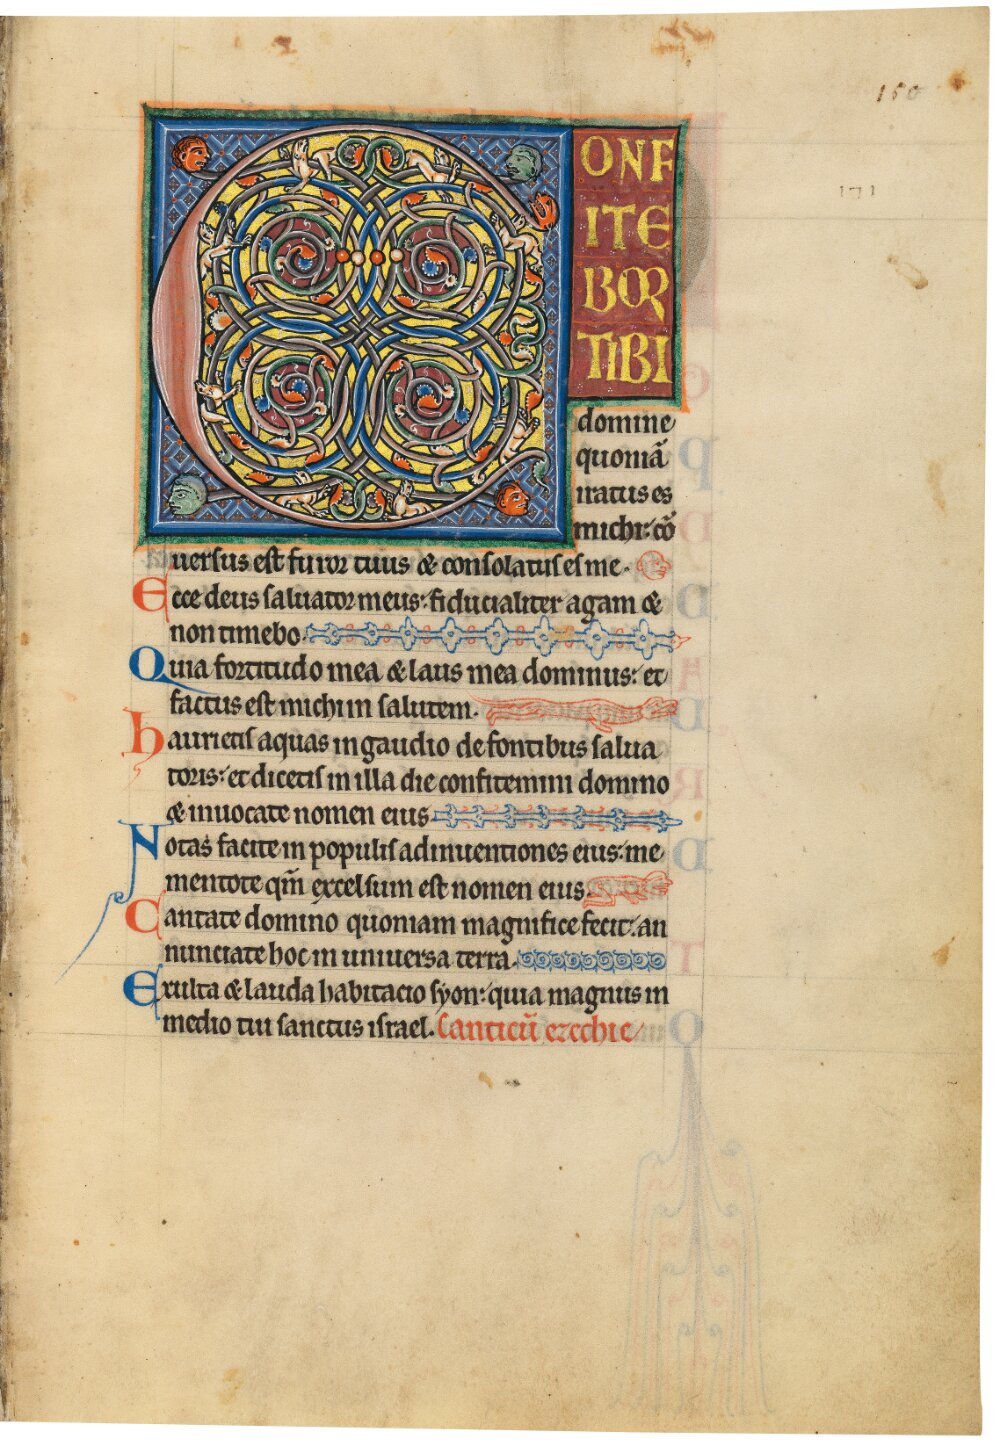 150
171
CONF
ITE
BOR
TIBI
domine
quoniã
iratus es
michi: cõ
uersus est furor tuus & consolatus es me.
Ecce deus saluator meus: fiducialiter agam &
non timebo.
Quia fortitudo mea & laus mea dominus: et
factus est michi in salutem.
haurietis aquas in gaudio de fontibus salua
toris: et dicetis in illa die confitemini domino
& inuocate nomen eius
Notas facite in populis adinuentiones eius: me
mentote qm̃ excelsum est nomen eius
Cantate domino quoniam magnifice fecit: an
nunciate hoc in uniuersa terra.
Exulta & lauda habitacio syon: quia magnus in
medio tui sanctus israel. Canticũ ezechie